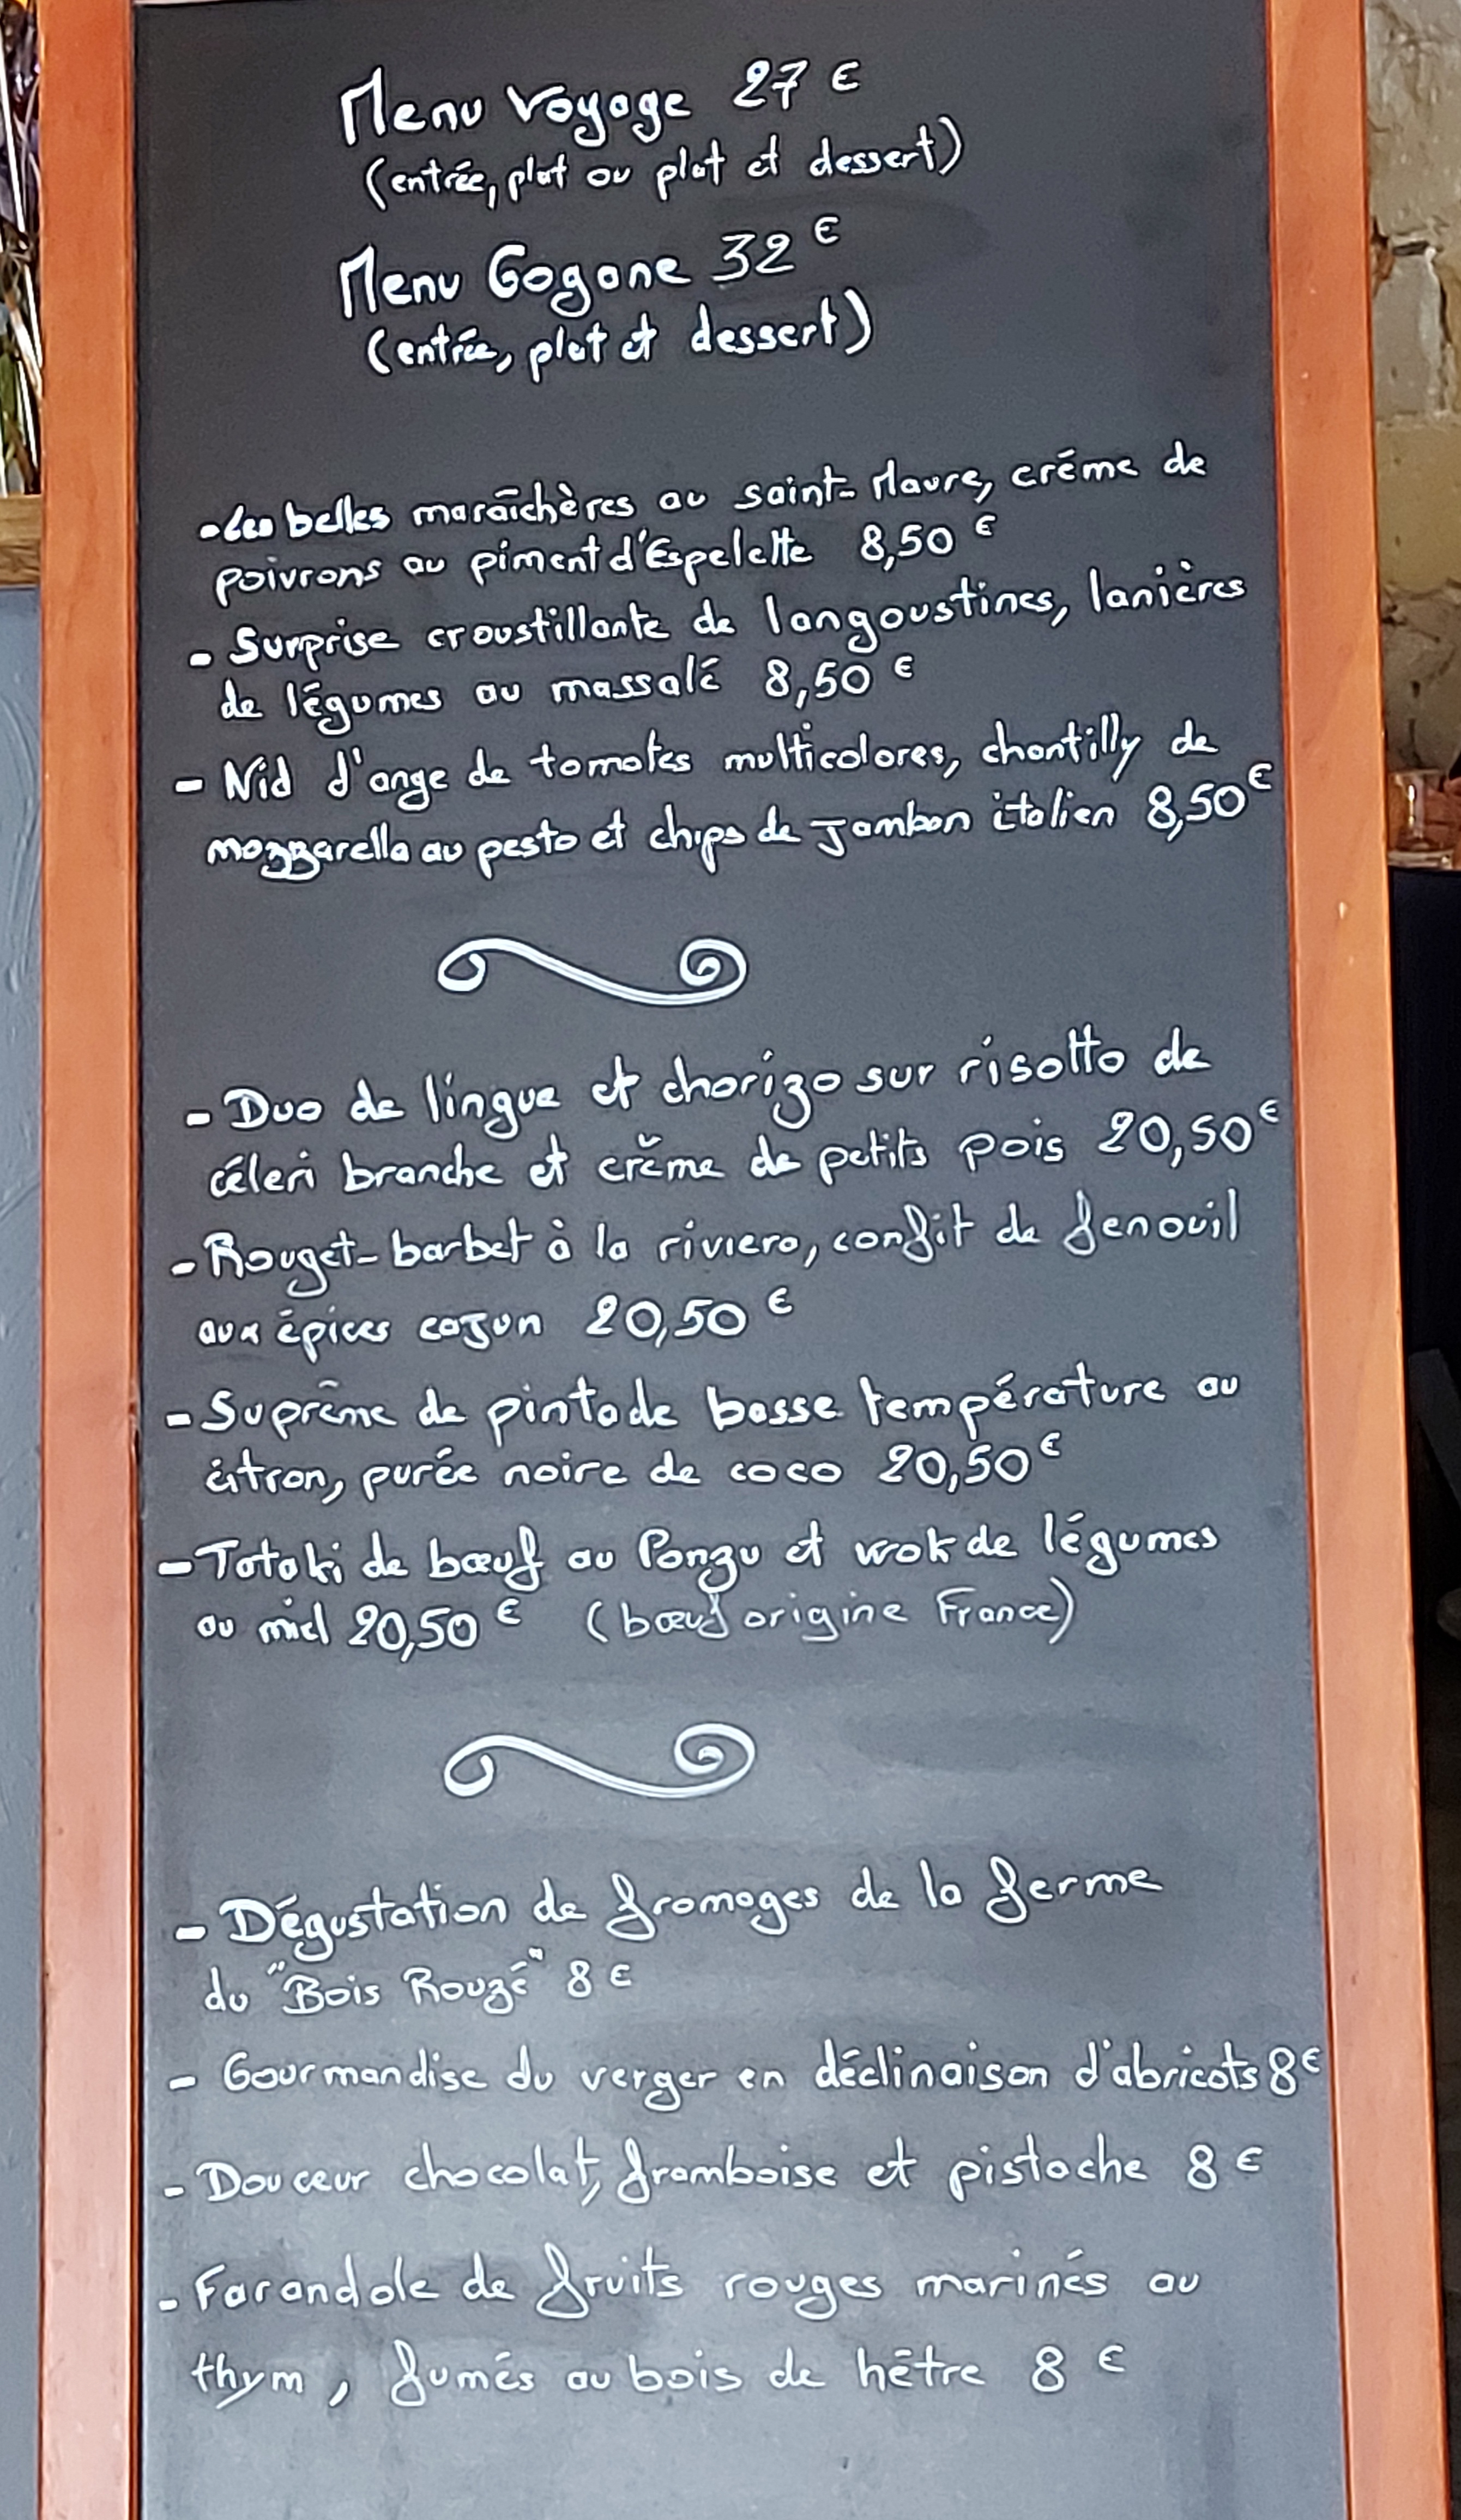 Menu Voyage 27 €
(entrée, plat ou plat et dessert)
Menu Gogane 32 €
(entrée, plat et dessert)
- Les belles maraîchères au saint-Maure, créme de
poivrons au piment d'Espelette 8,50 €
- Surprise croustillante de langoustines, lanières
de légumes au massalé 8,50 €
- Nid d'ange de tomates multicolores, chantilly de
mozzarella au pesto et chips de jambon italien 8,50 €
- Duo de lingue et chorizo sur risotto de
céleri branche et crème de petits pois 20,50 €
- Rouget-barbet à la riviera, confit de fenouil
aux épices cajun 20,50 €
- Suprême de pintade basse température au
citron, purée noire de coco 20,50 €
- Tataki de bœuf au Ponzu et wok de légumes
au miel 20,50 € (bœuf origine France)
- Dégustation de fromages de la ferme
du "Bois Rouzé" 8 €
- Gourmandise du verger en déclinaison d'abricots 8 €
- Douceur chocolat, framboise et pistache 8 €
- Farandole de fruits rouges marinés au
thym, fumés au bois de hêtre 8 €